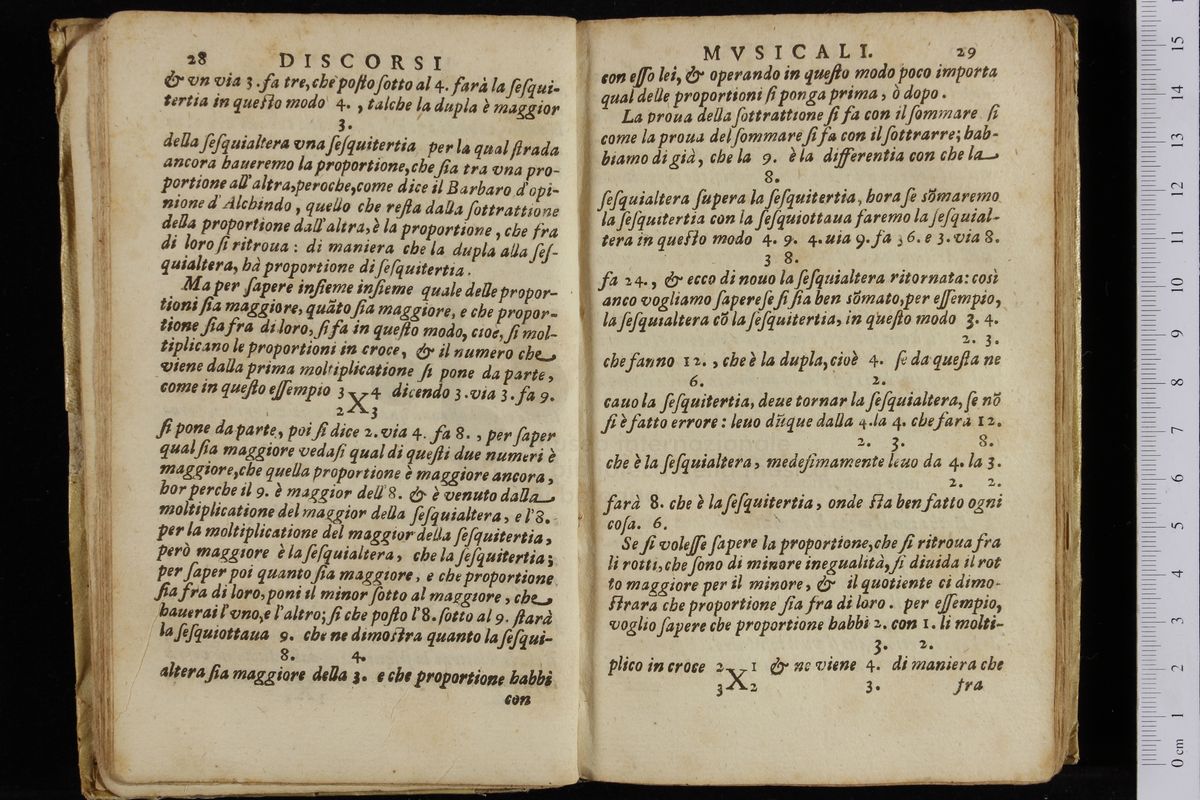 28 DISCORSI
& vn via 3. fa tre, che posto sotto al 4. farà la sesqui-
tertia in questo modo 4. , talche la dupla è maggior
3.
della sesquialtera vna sesquitertia per la qual strada
ancora haueremo la proportione, che sia tra vna pro-
portione all'altra, peroche, come dice il Barbaro d'opi-
nione d'Alchindo, quello che resta dalla sottrattione
della proportione dall'altra, è la proportione, che fra
di loro si ritroua: di maniera che la dupla alla ses-
quialtera, hà proportione di sesquitertia.
Ma per sapere insieme insieme quale delle propor-
tioni sia maggiore, quãto sia maggiore, e che propor-
tione sia fra di loro, si fa in questo modo, cioe, si mol-
tiplicano le proportioni in croce, & il numero che
viene dalla prima moltiplicatione si pone da parte,
come in questo essempio 3 X 4 dicendo 3. via 3. fa 9.
2 3
si pone da parte, poi si dice 2. via 4. fa 8. , per saper
qual sia maggiore vedasi qual di questi due numeri è
maggiore, che quella proportione è maggiore ancora,
hor perche il 9. è maggior dell'8. & è venuto dalla
moltiplicatione del maggior della sesquialtera, e l'8.
per la moltiplicatione del maggior della sesquitertia,
però maggiore è la sesquialtera, che la sesquitertia;
per saper poi quanto sia maggiore, e che proportione
sia fra di loro, poni il minor sotto al maggiore, che
hauerai l'vno, e l'altro; si che posto l'8. sotto al 9. starà
la sesquiottaua 9. che ne dimostra quanto la sesqui-
8. 4.
altera sia maggiore della 3. e che proportione habbi
con
MVSICALI. 29
con esso lei, & operando in questo modo poco importa
qual delle proportioni si ponga prima, ò dopo.
La proua della sottrattione si fa con il sommare si
come la proua del sommare si fa con il sottrarre; hab-
biamo di già, che la 9. è la differentia con che la
8.
sesquialtera supera la sesquitertia, hora se sõmaremo
la sesquitertia con la sesquiottaua faremo la sesquial-
tera in questo modo 4. 9. 4. uia 9. fa 36. e 3. via 8.
3 8.
fa 24., & ecco di nouo la sesquialtera ritornata: così
anco vogliamo sapere se si sia ben sõmato, per essempio,
la sesquialtera cõ la sesquitertia, in questo modo 3. 4.
2. 3.
che fanno 12. , che è la dupla, cioè 4. se da questa ne
6. 2.
cauo la sesquitertia, deue tornar la sesquialtera, se nõ
si è fatto errore: leuo dũque dalla 4. la 4. che farà 12.
2. 3. 8.
che è la sesquialtera, medesimamente leuo da 4. la 3.
2. 2.
farà 8. che è la sesquitertia, onde sta ben fatto ogni
cosa. 6.
Se si volesse sapere la proportione, che si ritroua fra
li rotti, che sono di minore inegualità, si diuida il rot
to maggiore per il minore, & il quotiente ci dimo-
strara che proportione sia fra di loro. per essempio,
voglio sapere che proportione habbi 2. con 1. li molti-
3. 2.
plico in croce 2 X 1 & ne viene 4. di maniera che
3 2 3. fra
0 cm 1 2 3 4 5 6 7 8 9 10 11 12 13 14 15